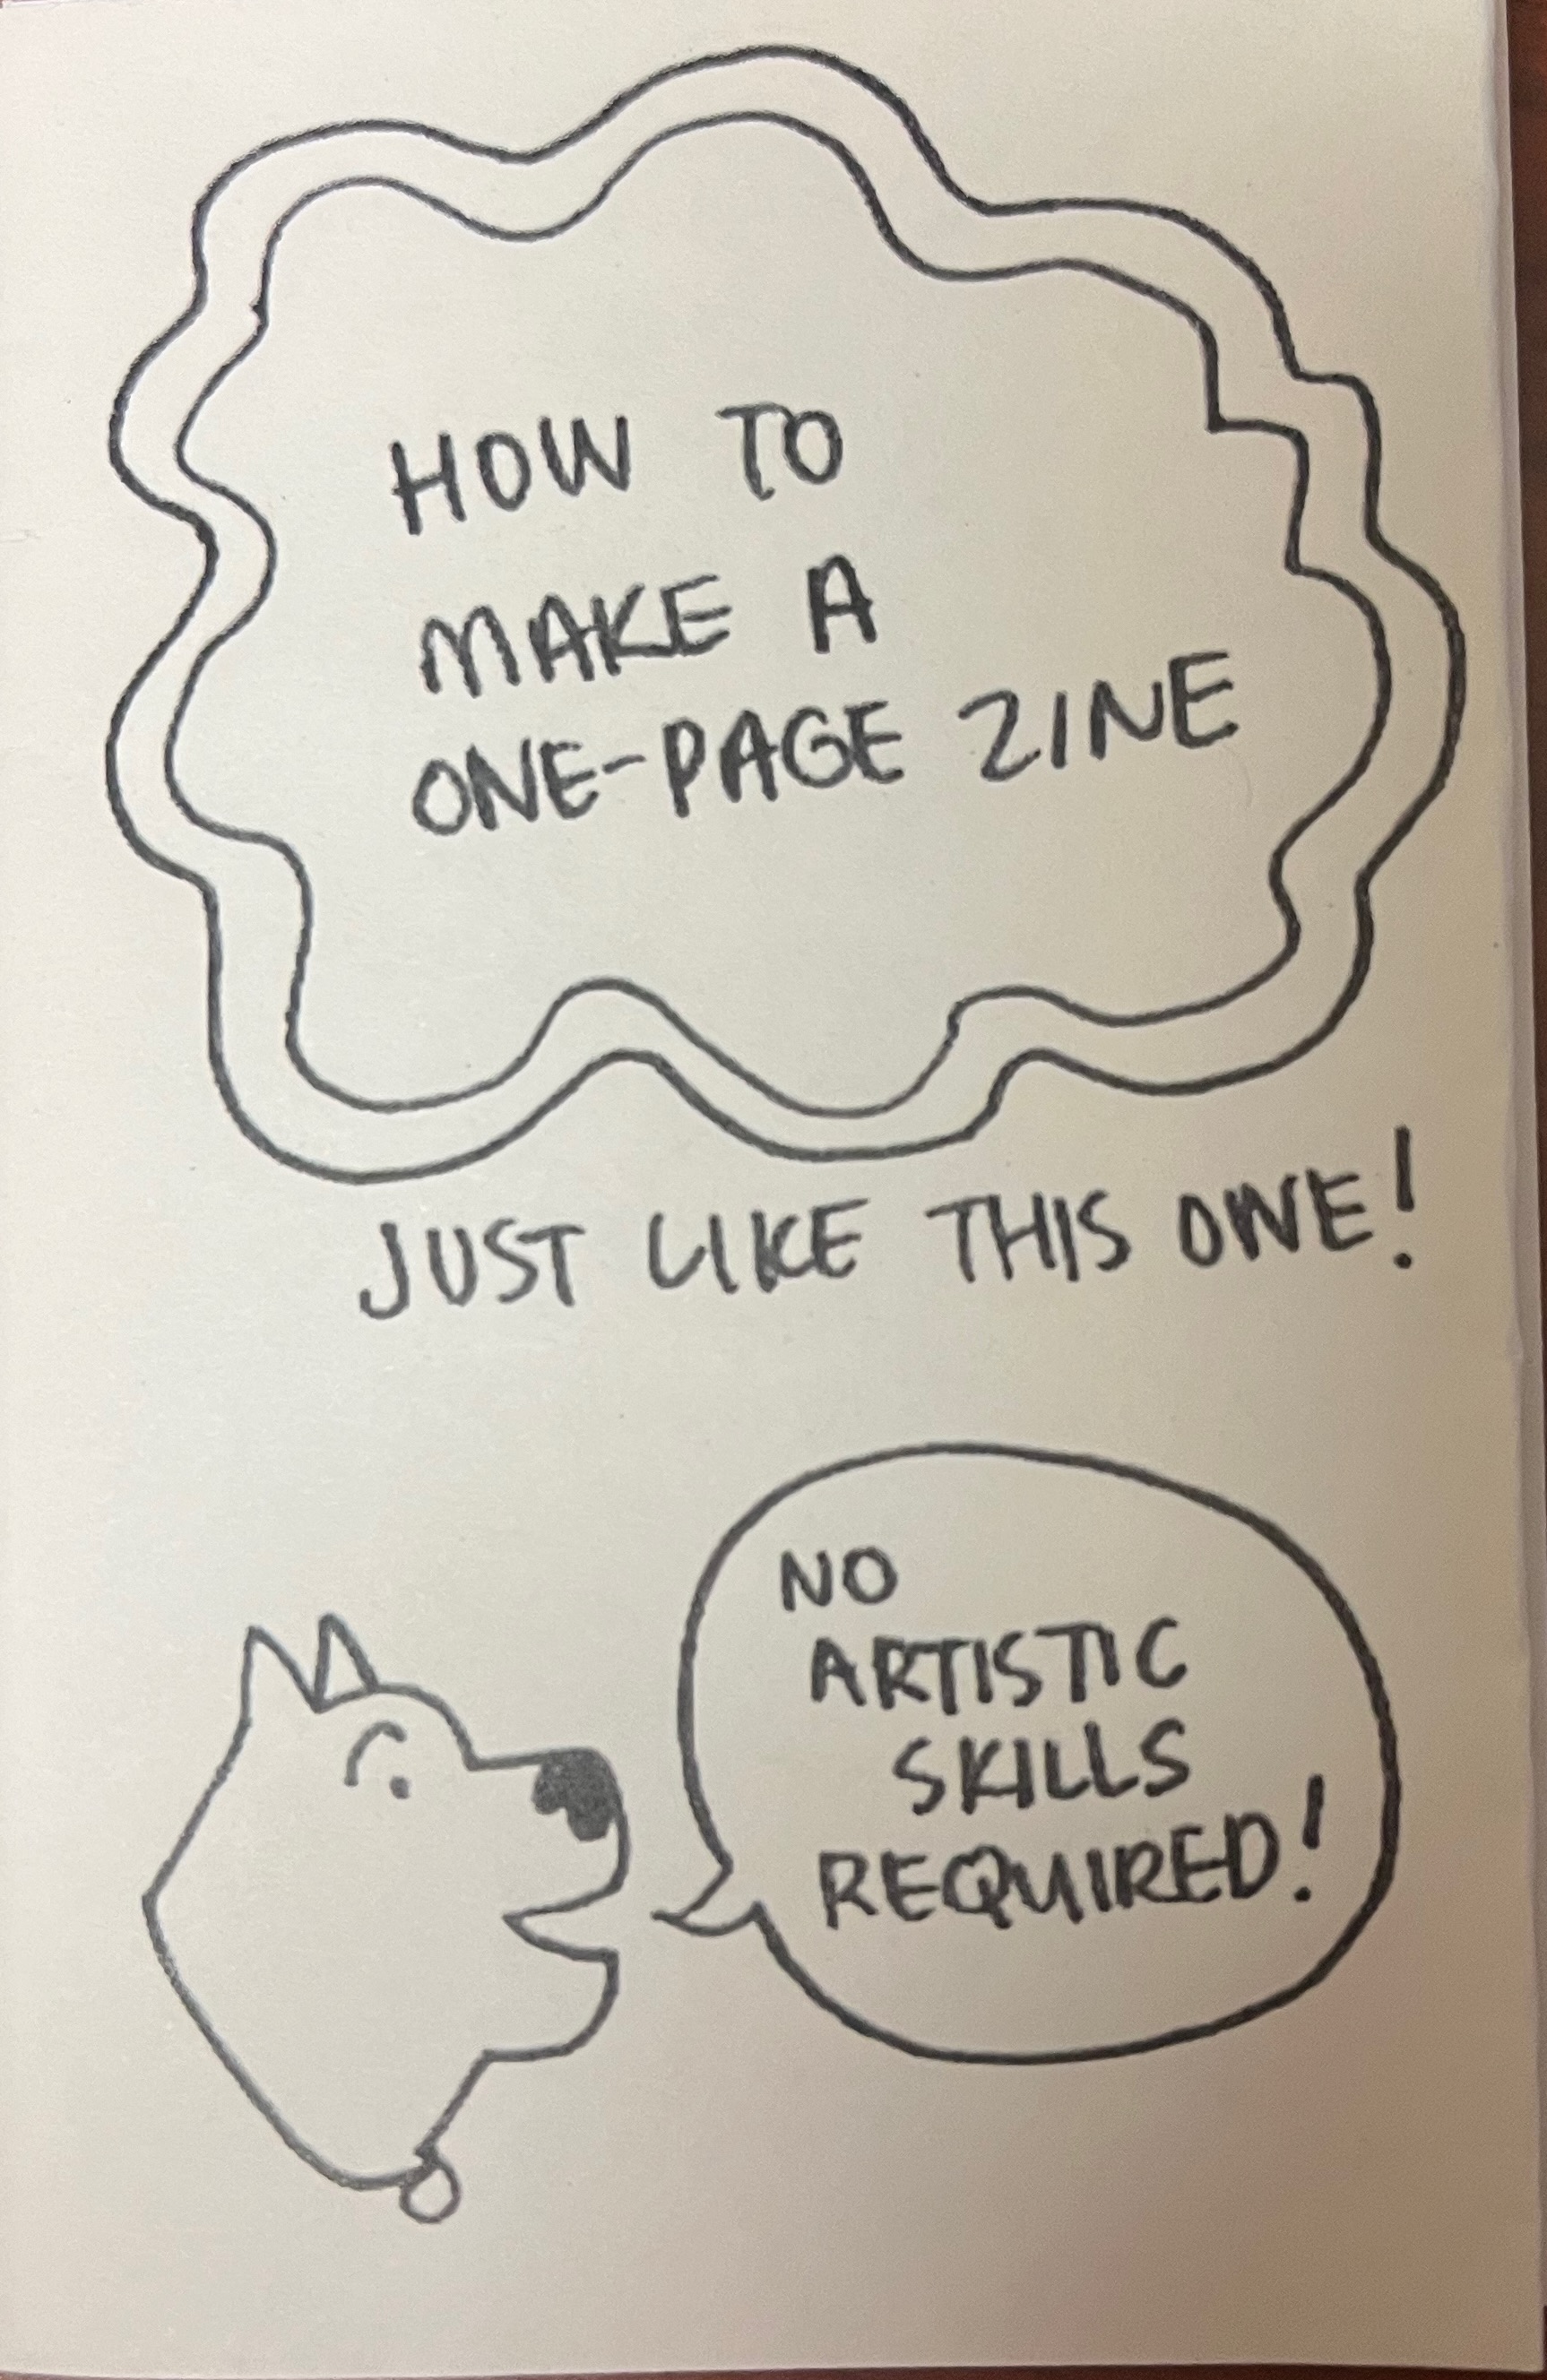 HOW TO
MAKE A
ONE-PAGE ZINE
JUST LIKE THIS ONE!
NO
ARTISTIC
SKILLS
REQUIRED!